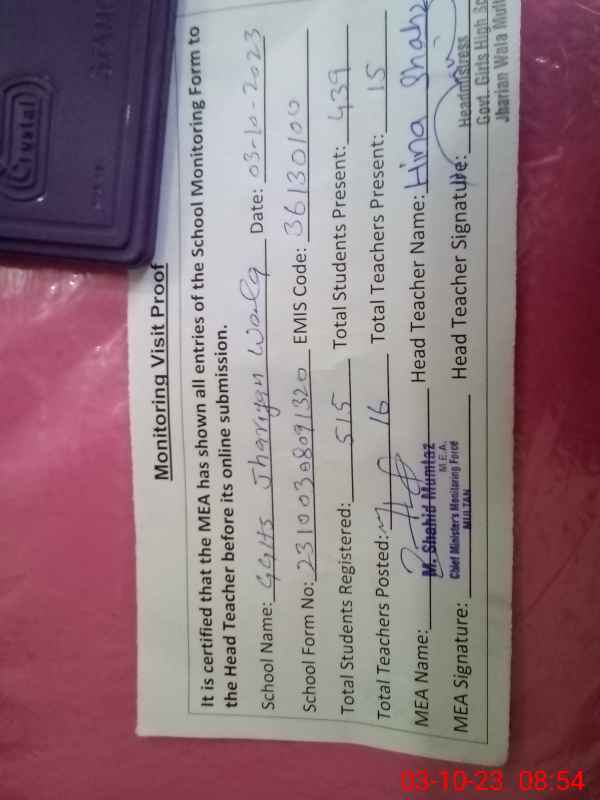 Crystal
Monitoring Visit Proof
It is certified that the MEA has shown all entries of the School Monitoring Form to
the Head Teacher before its online submission.
School Name: GGHS Jhariyan Wala Date: 03-10-2023
School Form No: 23100308091320 EMIS Code: 36130100
Total Students Registered: 515 Total Students Present: 439
Total Teachers Posted: 16 Total Teachers Present: 15
MEA Name: M. Shahid Mumtaz Head Teacher Name: Hina Shah
M.E.A.
Chief Minister's Monitoring Force
MULTAN
MEA Signature: Head Teacher Signature:
Headmistress
Govt. Girls High Sc
Jharian Wala Mult
03-10-23 08:54